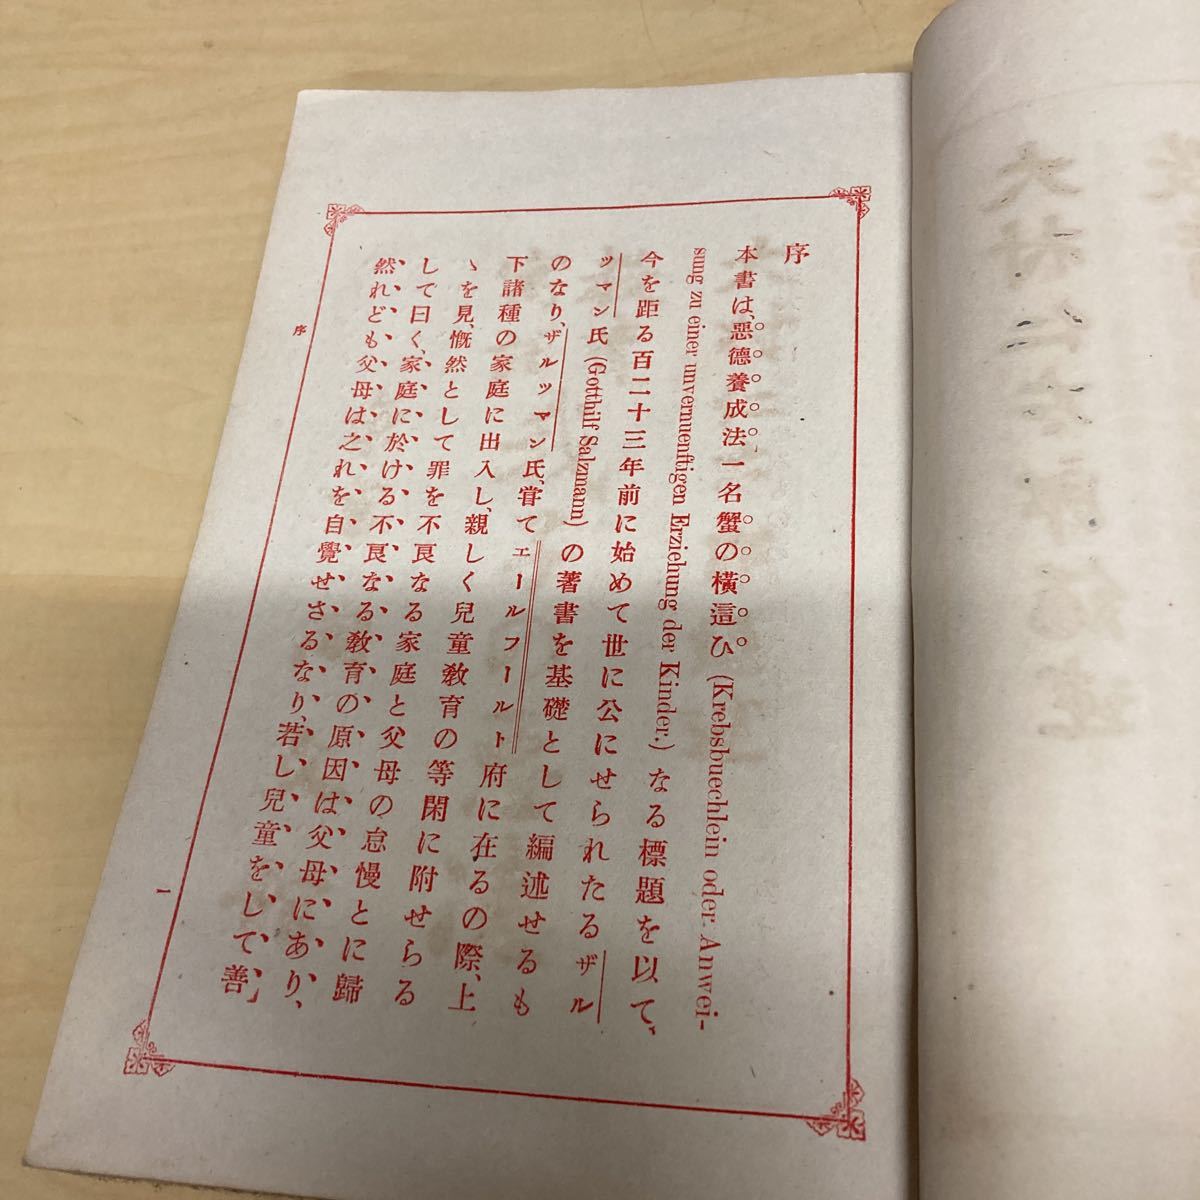 序
本書は、惡德養成法一名蟹の橫這ひ (Krebsbuechlein oder Anwei-
sung zu einer unvernuenftigen Erziehung der Kinder.) なる標題を以て、
今を距る百二十三年前に始めて世に公にせられたるザル
ツマン氏 (Gotthilf Salzmann) の著書を基礎として編述せるも
のなり、ザルツマン氏、甞てエールフールト府に在るの際、上
下諸種の家庭に出入し、親しく兒童敎育の等閑に附せらる
ゝを見、慨然として罪を不良なる家庭と父母の怠慢とに歸
して曰く、家庭に於ける不良なる敎育の原因は父母にあり、
然れども父母は之れを自覺せさるなり、若し兒童をして善」
序
一